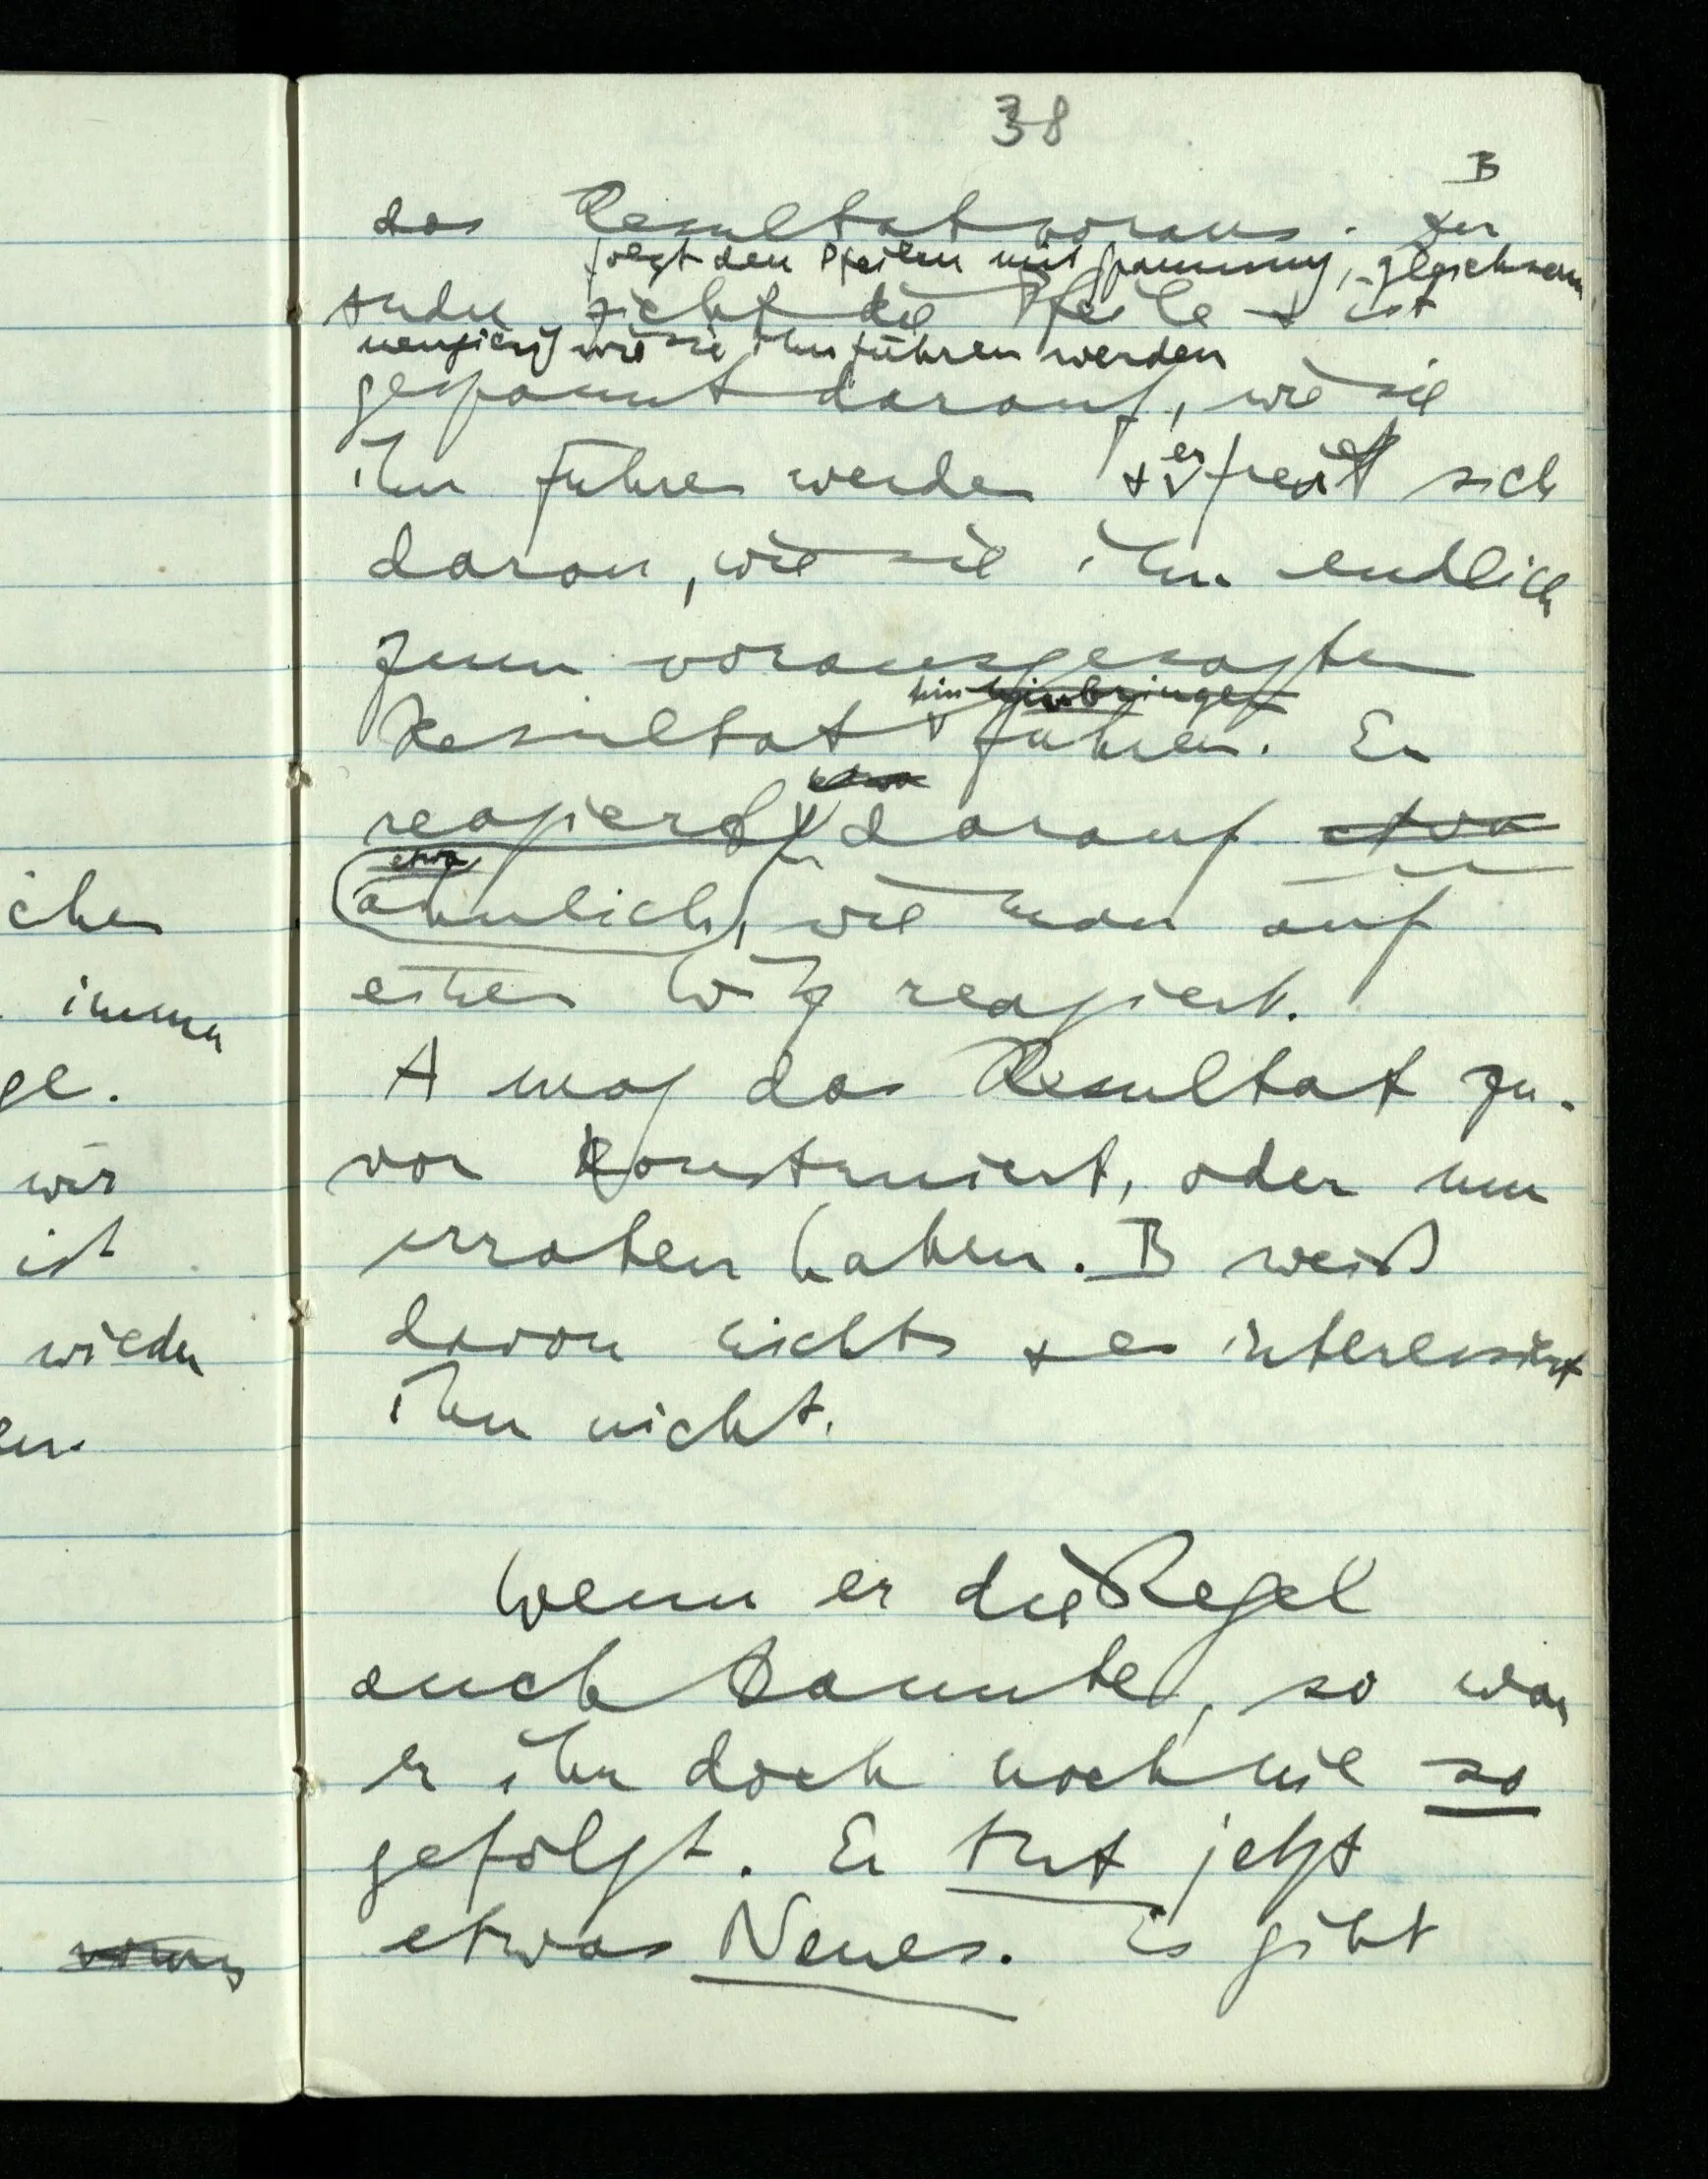 38
B
das Resultat voraus. Der
folgt den Pfeilen mit Spannung, gleichsam
andre sieht die Pfeile + ist
neugierig wie sie ihn führen werden
gespannt darauf, wie sie
ihn führen werden + er freut sich
daran, wie sie ihn endlich
zum vorausgesagten
hin hinbringen
Resultat führen. Er
etwa
reagiert darauf etwa
etwa
ähnlich, wie man auf
einen Witz reagiert.
A mag das Resultat zu-
vor konstruiert, oder nur
erraten haben. B weiß
davon nichts + es interessiert
ihn nicht.
Wenn er die Regel
auch kannte, so war
er ihr doch noch nie so
gefolgt. Er tut jetzt
etwas Neues. Es gibt
ichen
immer
ge.
wir
ist
wieder
en
voraus